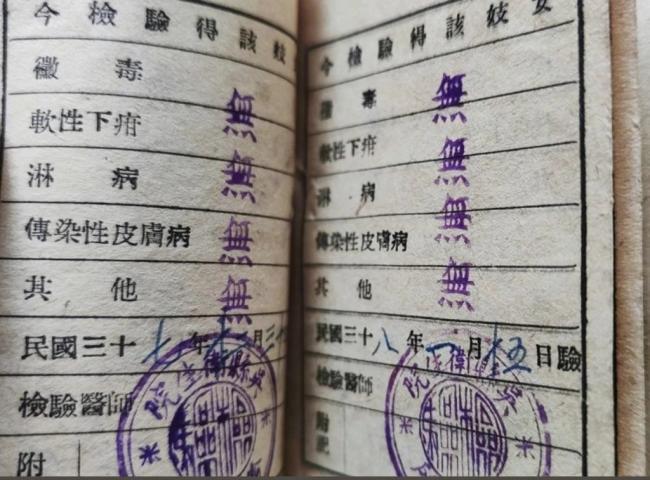 今檢驗得該妓
黴毒 無
軟性下疳 無
淋病 無
傳染性皮膚病 無
其他 無
民國三十七年 月三十
檢驗醫師
附
吳縣衛生院
今檢驗得該妓女
黴毒 無
軟性下疳 無
淋病 無
傳染性皮膚病 無
其他
民國三十八年一月十五日驗
檢驗醫師
附記
吳縣衛生院